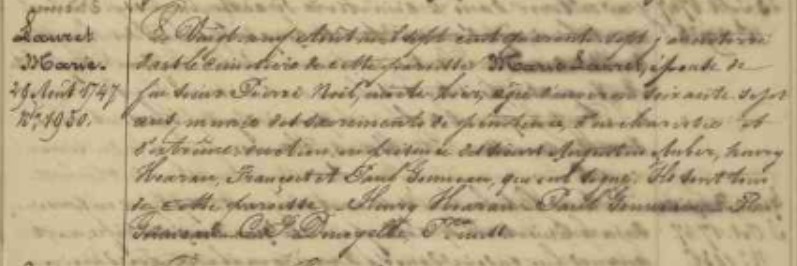 Lauret
Marie.
29 Août 1747
N° 1950.
Le Vingt neuf Août mil sept cent quarante sept, j'ai enterré
dans le cimetière de cette paroisse Marie Lauret, épouse de
feu sieur Pierre Noël, morte hier, agée d'environ soixante sept
ans, munie des sacrements de pénitence, d'eucharistie et
d'extrême onction en présence des sieurs Augustin Auber, henry
Hoarau, François et Paul Gonneau, qui ont signé. Ils sont tous
de cette paroisse. Henry Hoarau Paul Gonneau